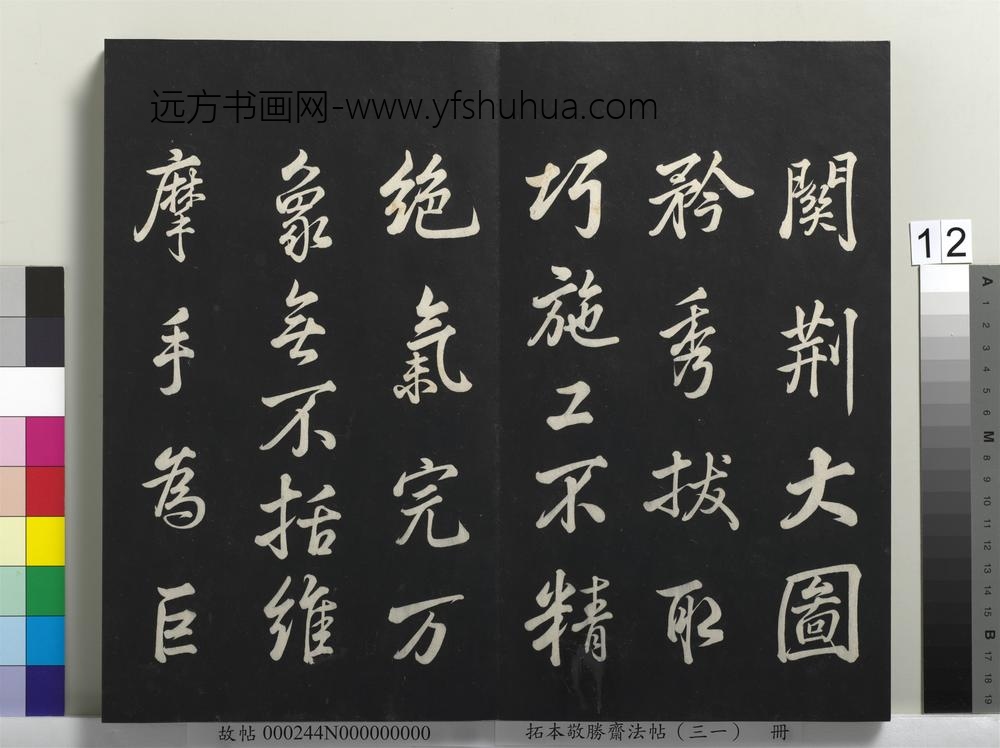 远方书画网-www.yfshuhua.com
關荆大圖
矜秀拔取
巧施工不精
絶氣完万
象無不括維
摩手為巨
12
A 1 2 3 4 5 6 M 8 9 10 11 12 13 14 15 B 17 18 19
故帖 000244N000000000
拓本敬勝齋法帖（三一） 冊